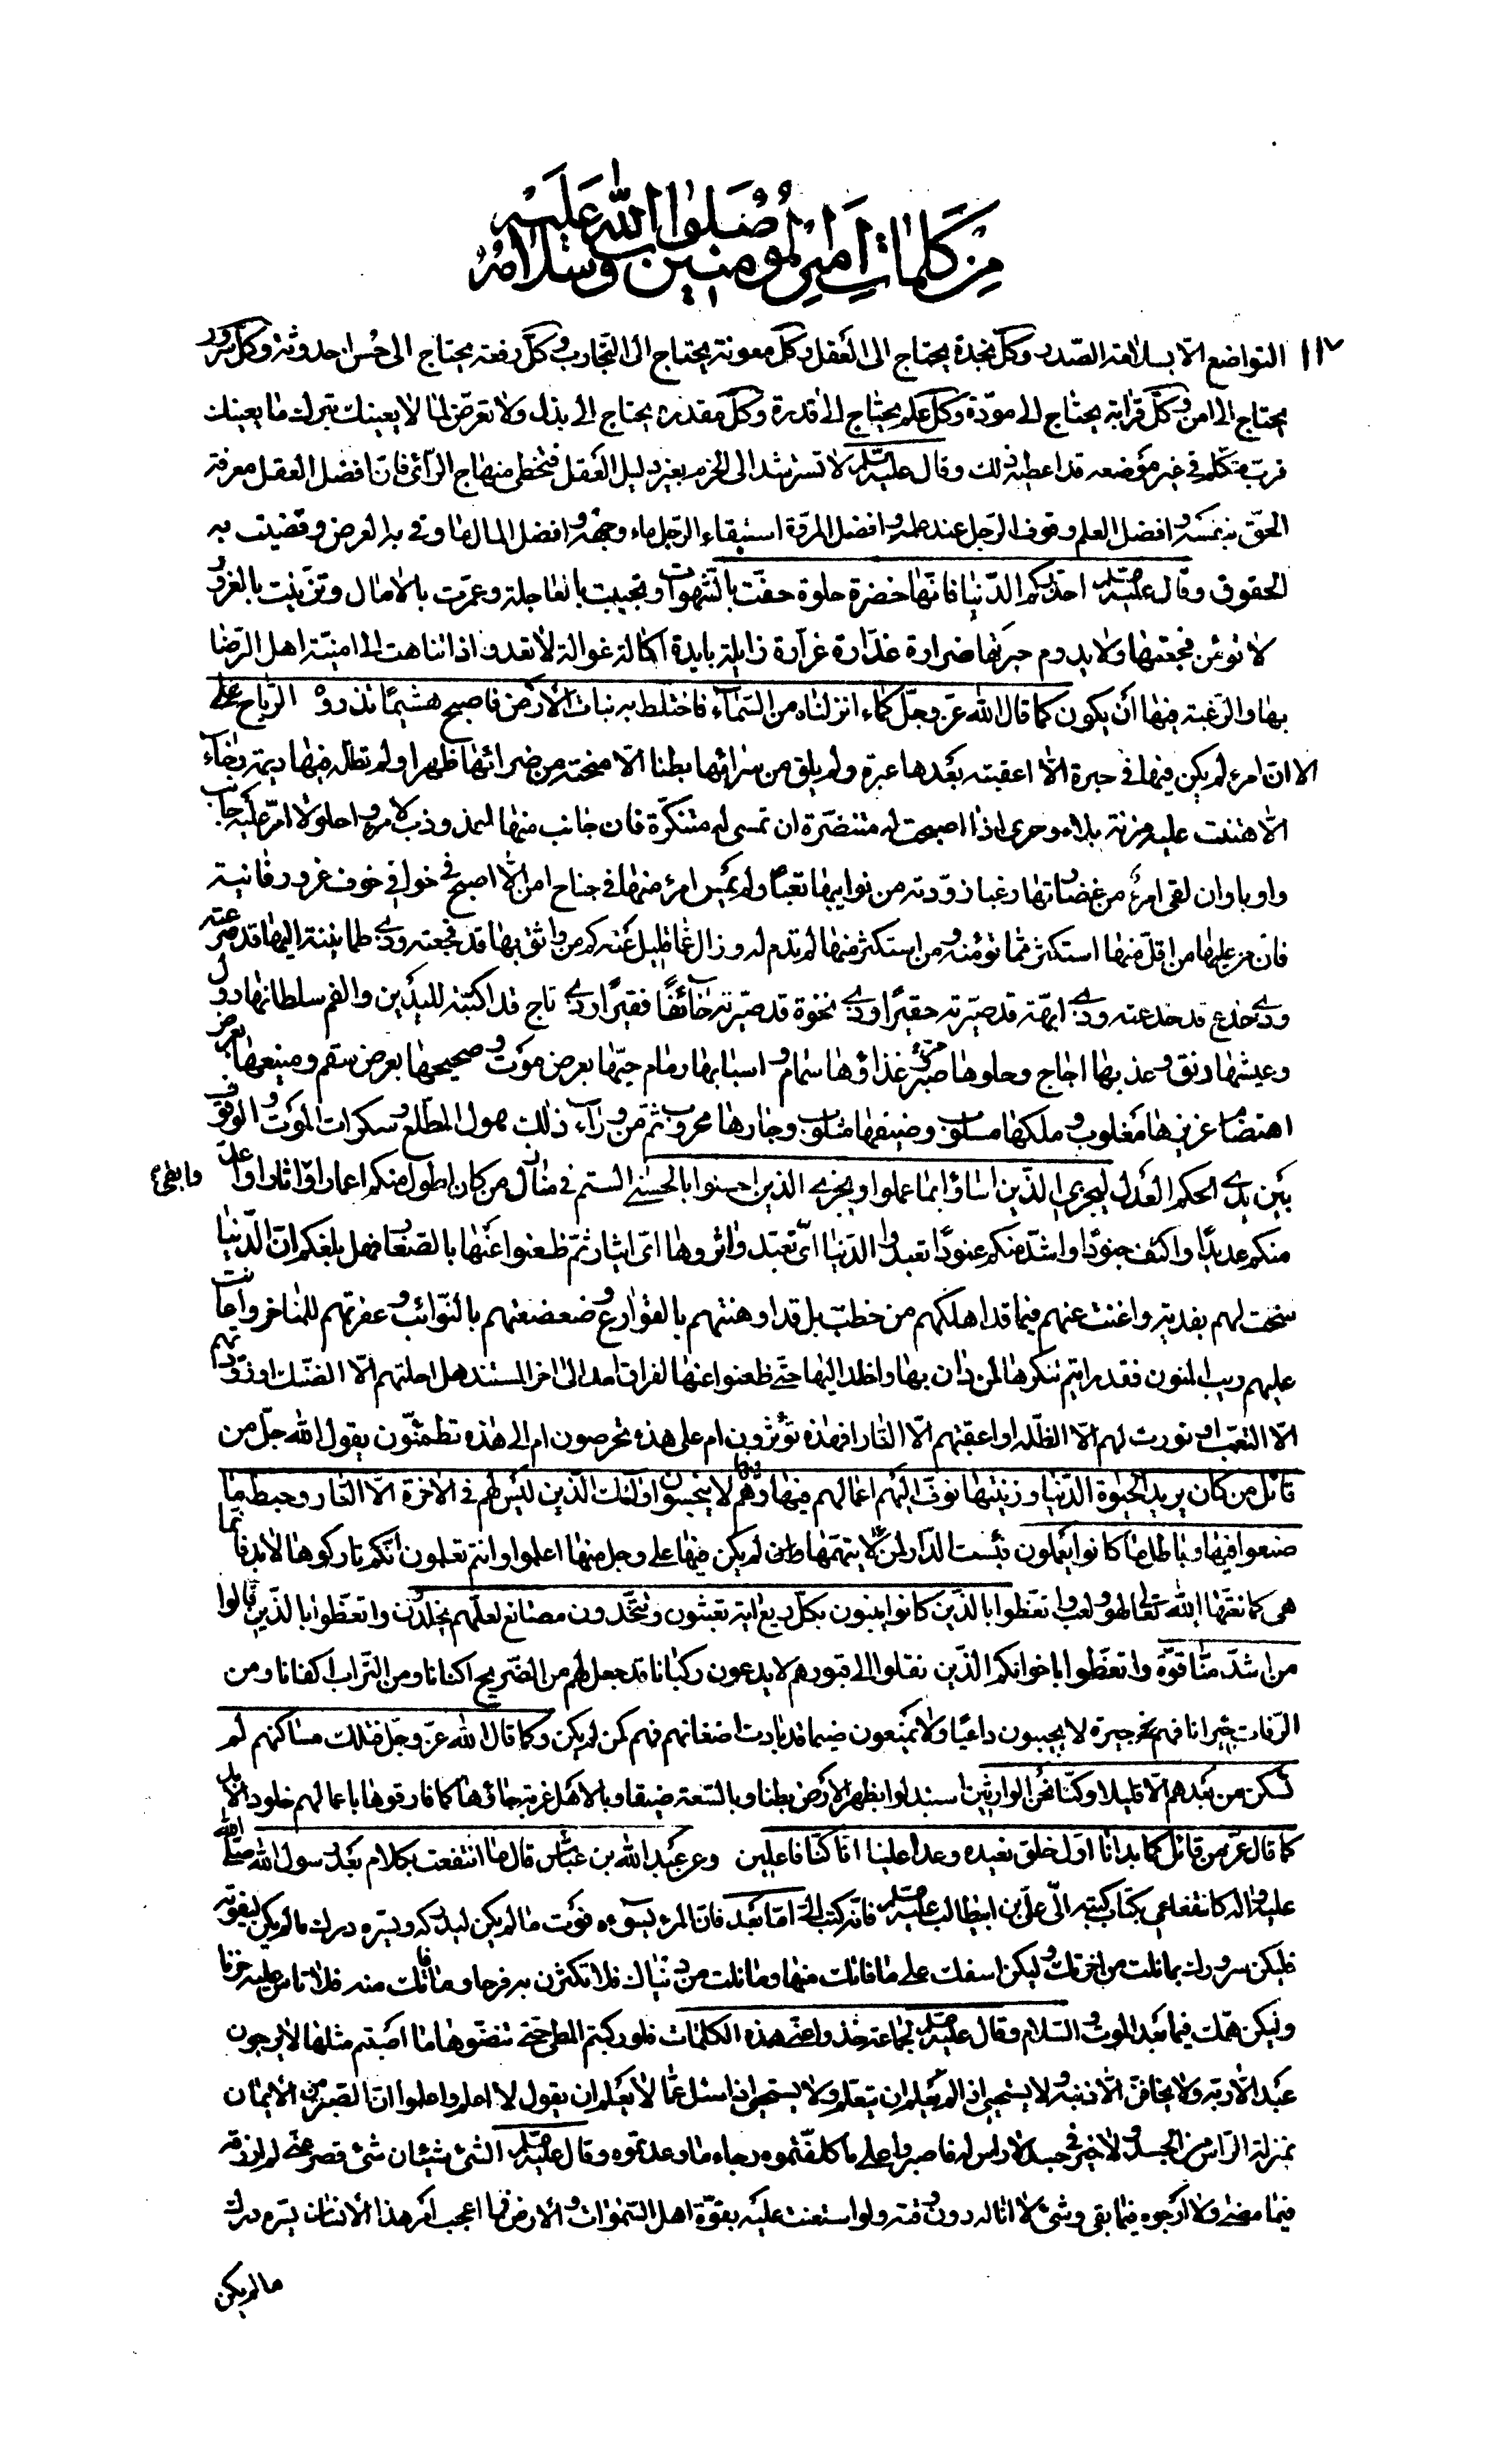 من كلمات أمير المؤمنين صلوات الله عليه وسلامه
١١٧
التواضع الا بسلامة الصدر وكل نجدة يحتاج الى العقل وكل معونة يحتاج الى التجارب وكل رفعة يحتاج الى حسن احدوثة وكل سرور
يحتاج الى امن وكل قرابة يحتاج الى مودة وكل علم يحتاج الى قدرة وكل مقدرة يحتاج الى بذل ولا تعرض لما لا يعينك بترك ما يعينك
فرب متكلم في غير موضعه قد اعطبه ذلك وقال عليه السلام لا تسترشد الى الحزم بغير دليل العقل فتخطى منهاج الرائ فان افضل العقل معرفة
الحق بنفسه وافضل العلم وقوف الرجل عند علمه وافضل المروة استبقاء الرجل ماء وجهه وافضل المال ما وقى به العرض وقضيت به
الحقوق وقال عليه السلام احذركم الدنيا فانها خضرة حلوة حفت بالشهوات وتحببت بالعاجلة وعمرت بالامال وتزينت بالغرور
لا تؤمن فجعتها ولا يدوم حبرتها ضرارة غدارة غرارة زايلة بايدة اكالة غوالة لا تعدو اذا تناهت الى امنية اهل الرضا
بها والرغبة فيها أن يكون كما قال الله عز وجل كماء انزلناه من السماء فاختلط به نبات الأرض فاصبح هشيمًا تذروه الرياح على
الا ان امرء لم يكن فيها في حبرة الا اعقبته بعدها عبرة ولم يلق من سرائها بطنا الا منحته من ضرائها ظهرا ولم تطله فيها ديمة رخاء
الا هتنت عليه مزنة بلاء وحرى اذا اصبحت له متنضرة ان تمسى له متنكرة فان جانب منها اعذوذب لامرء واحلولا امر عليه جانب
واوبا وان لقى امرء من غضاتها رغبا زودته من نوايبها تعبا ولم يمس امرء منها في جناح امن الا اصبح في خوافي خوف غرور فانية
فان من عليها من اقل منها استكثر مما تؤمنه ومن استكثر منها لم تدم له وزال عما قليل عنه كم من واثق بها قد فجعته وذي طمانينة اليها قد صرعته
وذي خدع قد خدعته وذي ابهة قد صيرته حقيرًا وذي نخوة قد صيرته خائفًا فقيرًا وذي تاج قد اكبته لليدين والفم سلطانها دول
وعيشها رنق وعذبها اجاج وحلوها صبر غذاؤها سمام واسبابها رمام حيها بعرض موت وصحيحها بعرض سقم ومنيعها بعرض
اهتضام عزيزها مغلوب وملكها مسلوب وضيفها مثلوب وجارها محروب ثم من وراء ذلك هول المطلع وسكرات الموت والوقوف
بين يدي الحكم العدل ليجزي الذين اساؤا بما عملوا ويجزي الذين احسنوا بالحسنى الستم في منازل من كان اطول منكم اعمارا واثارا واعد
وابقى
منكم عديدًا واكثف جنودًا واشد منكم عنودًا تعبدوا الدنيا اي تعبد واثروها اي ايثار ثم ظعنوا عنها بالصغار فهل بلغكم ان الدنيا
سخت لهم بفدية واغنت عنهم فيما قد اهلكهم من خطب بل قد اوهنتهم بالقوارع وضعضعتهم بالنوائب وعفرتهم للمناخر واعانت
عليهم ريب المنون فقد رايتم تنكرها لمن دان بها واخلد اليها حتى ظعنوا عنها لفراق امد الى اخر المستند هل احلتهم الا الضنك او زودتهم
الا التعب او نورت لهم الا الظلمة او اعقبتهم الا النار افهذه تؤثرون ام على هذه تحرصون ام الى هذه تطمئنون يقول الله جل من
قائل من كان يريد الحيوة الدنيا وزينتها نوف اليهم اعمالهم فيها وهم فيها لا يبخسون اولئك الذين ليس لهم في الاخرة الا النار وحبط ما
صنعوا فيها وباطل ما كانوا يعملون فبئست الدار لمن لا يتهمها وان لم يكن فيها على وجل منها اعلموا وانتم تعلمون انكم تاركوها لا بد فانما
هي كما نعتها الله تعالى لهو ولعب واتعظوا بالذين كانوا يبنون بكل ريع اية تعبثون ويتخذون مصانع لعلهم يخلدون واتعظوا بالذين قالوا
من اشد منا قوة واتعظوا باخوانكم الذين نقلوا الى قبورهم لا يدعون ركبانا قد جعل لهم من الضريح اكنانا ومن التراب اكفانا ومن
الرفات جيرانا فهم جيرة لا يجيبون داعيًا ولا يمنعون ضيما قد بادت اضغانهم فهم كمن لم يكن وكما قال الله عز وجل فتلك مساكنهم لم
تسكن من بعدهم الا قليلا وكنا نحن الوارثين استبدلوا بظهر الارض بطنا وبالسعة ضيقا وبالاهل غربة جاؤها كما فارقوها باعمالهم خلود الابد
كما قال عز من قائل كما بدانا اول خلق نعيده وعدا علينا انا كنا فاعلين وعن عبد الله بن عباس قال ما انتفعت بكلام بعد رسول الله صلى الله
عليه واله كانتفاعي بكتاب كتبه الى علي بن ابيطالب عليه السلام فانه كتب الى اما بعد فان المرء يسوءه فوت ما لم يكن ليدركه ويسره درك ما لم يكن ليفوته
فليكن سرورك بما نلت من اخرتك وليكن اسفك على ما فاتك منها وما نلت من دنياك فلا تكثرن به فرحا وما فاتك منه فلا تاس عليه حزنا
وليكن همك فيما بعد الموت والسلام وقال عليه السلام لجماعة خذوا عني هذه الكلمات فلو ركبتم المطي حتى تنضوها ما اصبتم مثلها لا يرجون
عبد الا ربه ولا يخافن الا ذنبه ولا يستحيي اذا لم يعلم ان يتعلم ولا يستحيي اذا سئل عما لا يعلم ان يقول لا اعلم واعلموا ان الصبر من الايمان
بمنزلة الراس من الجسد ولا خير في جسد لا راس له فاصبروا على ما كلفتموه رجاء ما وعدتموه وقال عليه السلام الشئ شيئان شئ قصر عني لم ارزقه
فيما مضى ولا ارجوه فيما بقى وشئ لا اناله دون وقته ولو استعنت عليه بقوة اهل السموات والارض فما اعجب امر هذا الانسان يسره درك
ما لم يكن